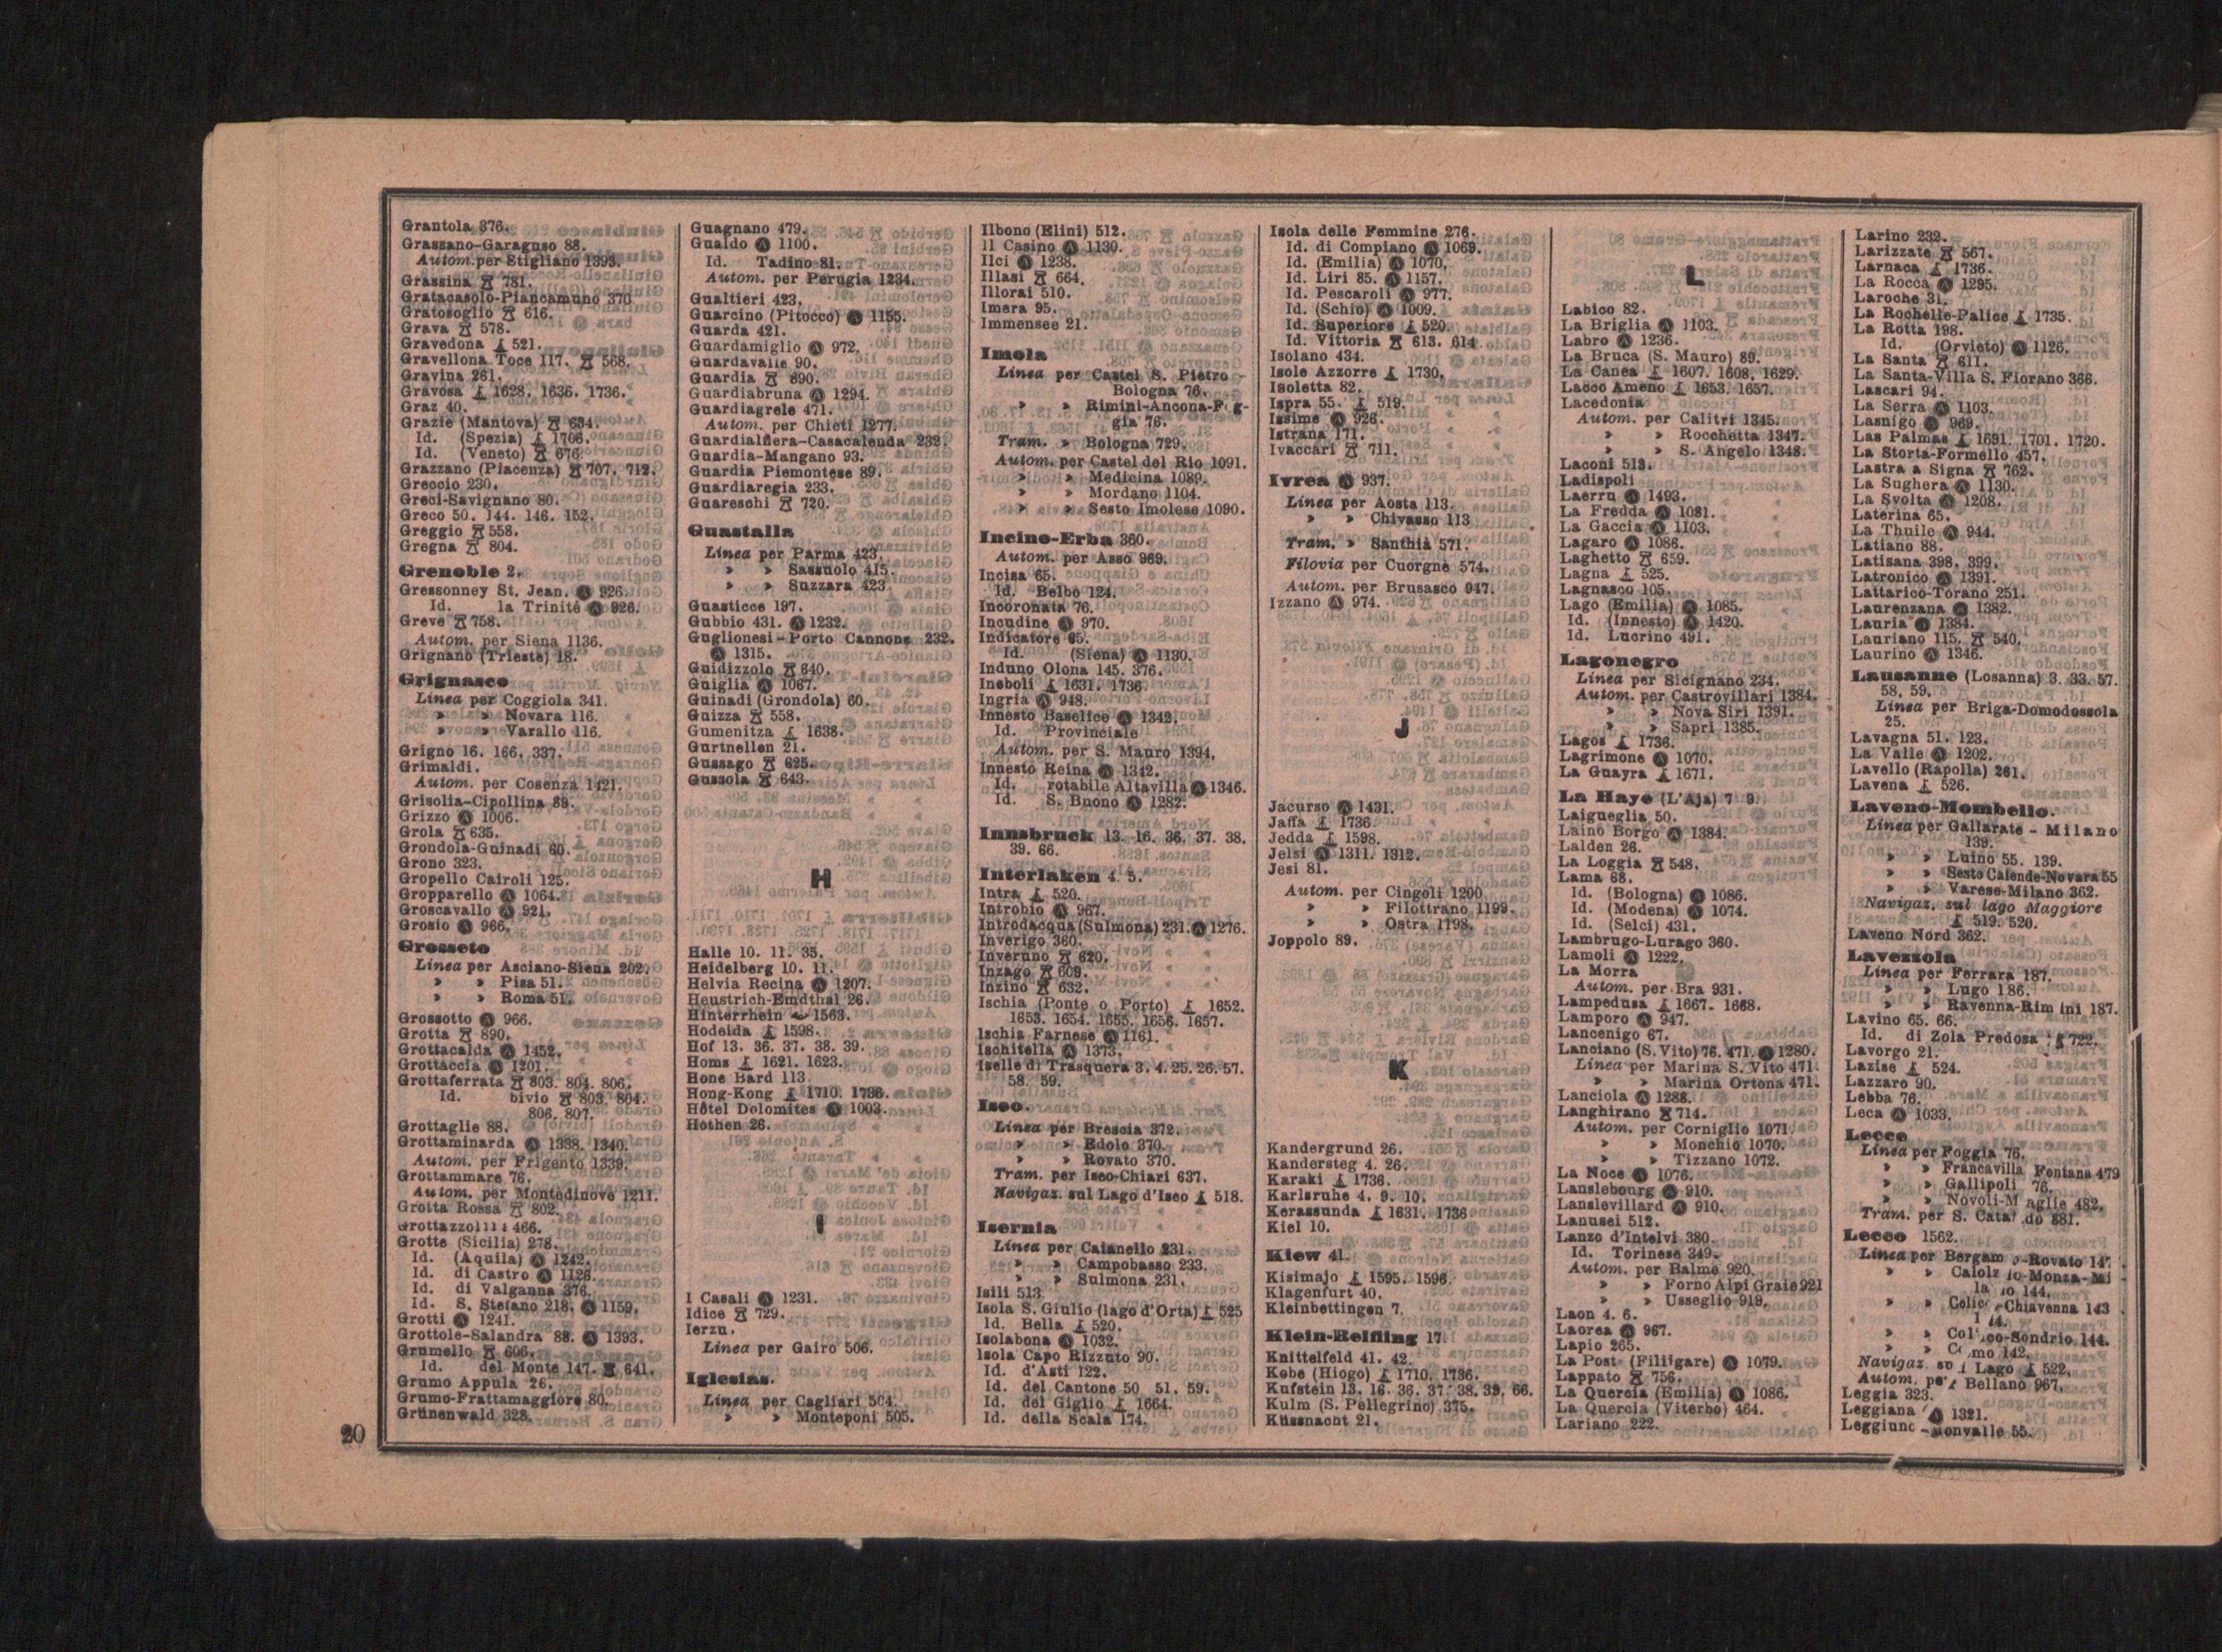 Grantola 376.
Grassano-Garaguso 88.
Autom. per Stigliano 1393.
Grassina 781.
Gratacasolo-Piancamuno 370
Gratosoglio 616.
Grava 578.
Gravedona 521.
Gravellona Toce 117. 568.
Gravina 261.
Gravosa 1628. 1636. 1736.
Graz 40.
Grazie (Mantova) 634.
Id. (Spezia) 1706.
Id. (Veneto) 676
Grazzano (Piacenza) 707. 712.
Greccio 230.
Greci-Savignano 80.
Greco 50. 144. 146. 152.
Greggio 558.
Gregna 804.
Grenoble 2.
Gressonney St. Jean. A 926.
Id. la Trinité A 926.
Greve 758.
Autom. per Siena 1136.
Grignano (Trieste) 18.
Grignasco
Linea per Coggiola 341.
» » Novara 116.
» » Varallo 116.
Grigno 16. 166. 337.
Grimaldi.
Autom. per Cosenza 1421.
Grisolia-Cipollina 88.
Grizzo A 1006.
Grola 635.
Grondola-Guinadi 60.
Grono 323.
Gropello Cairoli 125.
Gropparello A 1064.
Groscavallo A 921.
Grosio A 966.
Grosseto
Linea per Asciano-Siena 202.
» » Pisa 51.
» » Roma 51.
Grossotto A 966.
Grotta 890.
Grottacalda A 1452.
Grottaccia A 1201.
Grottaferrata 803. 804. 806.
Id. bivio 803. 804.
806. 807.
Grottaglie 88.
Grottaminarda A 1338. 1340.
Autom. per Frigento 1339.
Grottammare 76.
Autom. per Montedinove 1211.
Grotta Rossa 802.
466.
Grotte (Sicilia) 278.
Id. (Aquila) A 1242.
Id. di Castro A 1126.
Id. di Valganna 376.
Id. S. Stefano 218. A 1159.
Grotti A 1241.
Grottole-Salandra 88. A 1393.
Grumello 606.
Id. del Monte 147. 641.
Grumo Appula 26.
Grumo-Frattamaggiore 80.
Grünenwald 328.
20
Guagnano 479.
Gualdo A 1100.
Id. Tadino 81.
Autom. per Perugia 1234.
Gualtieri 423.
Guarcino (Pitocco) A 1155.
Guarda 421.
Guardamiglio A 972.
Guardavalle 90.
Guardia 890.
Guardiabruna A 1294.
Guardiagrele 471.
Autom. per Chieti 1277.
Guardialfiera-Casacalenda 232.
Guardia-Mangano 93.
Guardia Piemontese 89.
Guardiaregia 233.
Guareschi 720.
Guastalla
Linea per Parma 423.
» » Sassuolo 415.
» » Suzzara 423
Guasticce 197.
Gubbio 431. A 1232.
Guglionesi-Porto Cannone 232.
A 1315.
Guidizzolo 640.
Guiglia A 1067.
Guinadi (Grondola) 60.
Guizza 558.
Gumenitza 1638.
Gurtnellen 21.
Gussago 625.
Gussola 643.
H
Halle 10. 11. 35.
Heidelberg 10. 11.
Helvia Recina A 1207.
Heustrich-Emdthal 26.
Hinterrhein 1563.
Hodeida 1598.
Hof 13. 36. 37. 38. 39.
Homs 1621. 1623.
Hone Bard 113
Hong-Kong 1710. 1736.
Hôtel Dolomites A 1003.
Hothen 26.
I
I Casali A 1231.
Idice 729.
Ierzu.
Linea per Gairo 506.
Iglesias.
Linea per Cagliari 504.
» » Monteponi 505.
Ilbono (Elini) 512.
Il Casino A 1130.
Ilci A 1238.
Illasi 664.
Illorai 510.
Imera 95.
Immensee 21.
Imola
Linea per Castel S. Pietro -
Bologna 76.
» » Rimini-Ancona-F g-
gia 76.
Tram. » Bologna 729.
Autom. per Castel del Rio 1091.
» » Medicina 1089.
» » Mordano 1104.
» » Sesto Imolese 1090.
Incino-Erba 360.
Autom. per Asso 969.
Incisa 65.
Id. Belbo 124.
Incoronata 76.
Incudine A 970.
Indicatore 65.
Id. (Siena) A 1130.
Induno Olona 145. 376.
Ineboli 1631. 1736.
Ingria A 948.
Innesto Baselice A 1342.
Id. Provinciale
Autom. per S. Mauro 1394.
Innesto Reina A 1342.
Id. rotabile Altavilla A 1346.
Id. S. Buono A 1282.
Innsbruck 13. 16. 36. 37. 38.
39. 66.
Interlaken 4. 5.
Intra 520.
Introbio A 967.
Introdacqua (Sulmona) 231. A 1276.
Inverigo 360.
Inveruno 620.
Inzago 609.
Inzino 632.
Ischia (Ponte o Porto) 1652.
1653. 1654. 1655. 1656. 1657.
Ischia Farnese A 1161.
Ischitella A 1373.
Iselle di Trasquera 3. 4. 25. 26. 57.
58. 59.
Iseo.
Linea per Brescia 372.
» » Edolo 370.
» » Rovato 370.
Tram. per Iseo-Chiari 637.
Navigaz. sul Lago d'Iseo 518.
Isernia
Linea per Caianello 231.
» » Campobasso 233.
» » Sulmona 231.
Isili 513.
Isola S. Giulio (lago d'Orta) 525
Id. Bella 520.
Isolabona A 1032.
Isola Capo Rizzuto 90.
Id. d'Asti 122.
Id. del Cantone 50 51. 59.
Id. del Giglio 1664.
Id. della Scala 174.
Isola delle Femmine 276.
Id. di Compiano A 1069.
Id. (Emilia) A 1070.
Id. Liri 85. A 1157.
Id. Pescaroli A 977.
Id. (Schio) A 1009.
Id. Superiore 520.
Id. Vittoria 613. 614
Isolano 434.
Isole Azzorre 1730.
Isoletta 82.
Ispra 55. 519.
Issime A 926.
Istrana 171.
Ivaccari 711.
Ivrea A 937.
Linea per Aosta 113.
» » Chivasso 113
Tram. » Santhià 571.
Filovia per Cuorgnè 574.
Autom. per Brusasco 947.
Izzano A 974.
J
Jacurso A 1431.
Jaffa 1736.
Jedda 1598.
Jelsi A 1311. 1312.
Jesi 81.
Autom. per Cingoli 1200
» » Filottrano 1199.
» » Ostra 1198.
Joppolo 89.
K
Kandergrund 26.
Kandersteg 4. 26.
Karaki 1736.
Karlsruhe 4. 9. 10.
Kerassunda 1631. 1736
Kiel 10.
Kiew 41.
Kisimajo 1595. 1596.
Klagenfurt 40.
Kleinbettingen 7.
Klein-Reifling 17.
Knittelfeld 41. 42.
Kobe (Hiogo) 1710. 1736.
Kufstein 13. 16. 36. 37. 38. 39. 66.
Kulm (S. Pellegrino) 375.
Küssnacht 21.
L
Labico 82.
La Briglia A 1103.
Labro A 1236.
La Bruca (S. Mauro) 89.
La Canea 1607. 1608. 1629.
Lacco Ameno 1653. 1657.
Lacedonia
Autom. per Calitri 1345.
» » Rocchetta 1347.
» » S. Angelo 1348.
Laconi 513.
Ladispoli
Laerru A 1493.
La Fredda A 1081.
La Gaccia A 1103.
Lagaro A 1086.
Laghetto 659.
Lagna 525.
Lagnasco 105.
Lago (Emilia) A 1085.
Id. (Innesto) A 1420.
Id. Lucrino 491.
Lagonegro
Linea per Sicignano 234.
Autom. per Castrovillari 1384.
» » Nova Siri 1391.
» » Sapri 1385.
Lagos 1736.
Lagrimone A 1070.
La Guayra 1671.
La Haye (L'Aja) 7 9.
Laigueglia 50.
Laino Borgo A 1384.
Lalden 26.
La Loggia 548.
Lama 68.
Id. (Bologna) A 1086.
Id. (Modena) A 1074.
Id. (Selci) 431.
Lambrugo-Lurago 360.
Lamoli A 1222.
La Morra
Autom. per Bra 931.
Lampedusa 1667. 1668.
Lamporo A 947.
Lancenigo 67.
Lanciano (S. Vito) 76. 471. A 1280.
Linea per Marina S. Vito 471.
» » Marina Ortona 471.
Lanciola A 1288.
Langhirano 714.
Autom. per Corniglio 1071.
» » Monchio 1070.
» » Tizzano 1072.
La Noce A 1076.
Lanslebourg A 910.
Lanslevillard A 910.
Lanusei 512.
Lanzo d'Intelvi 380.
Id. Torinese 349.
Autom. per Balme 920.
» » Forno Alpi Graie 921
» » Usseglio 919.
Laon 4. 6.
Laorca A 967.
Lapio 265.
La Posta (Filigare) A 1079.
Lappato 756.
La Quercia (Emilia) A 1086.
La Quercia (Viterbo) 464.
Lariano 222.
Larino 232.
Larizzate 567.
Larnaca 1736.
La Rocca A 1295.
Laroche 31.
La Rochelle-Palice 1735.
La Rotta 198.
Id. (Orvieto) A 1126.
La Santa 611.
La Santa-Villa S. Fiorano 366.
Lascari 94.
La Serra A 1103.
Lasnigo A 969.
Las Palmas 1691. 1701. 1720.
La Storta-Formello 457.
Lastra a Signa 762.
La Sughera A 1130.
La Svolta A 1208.
Laterina 65.
La Thuile A 944.
Latiano 88.
Latisana 398. 399.
Latronico A 1391.
Lattarico-Torano 251.
Laurenzana A 1382.
Lauria A 1384.
Lauriano 115. 540.
Laurino A 1346.
Lausanne (Losanna) 3. 33. 57.
58. 59.
Linea per Briga-Domodossola
25.
Lavagna 51. 123.
La Valle A 1202.
Lavello (Rapolla) 261.
Lavena 526.
Laveno-Mombello.
Linea per Gallarate - Milano
139.
» » Luino 55. 139.
» » Sesto Calende-Novara 55
» » Varese-Milano 362.
Navigaz. sul lago Maggiore
519. 520.
Laveno Nord 362.
Lavezzola
Linea per Ferrara 187.
» » Lugo 186.
» » Ravenna-Rimini 187.
Lavino 65. 66.
Id. di Zola Predosa 722.
Lavorgo 21.
Lazise 524.
Lazzaro 90.
Lebba 76.
Leca A 1033.
Lecce
Linea per Foggia 76.
» » Francavilla Fontana 479
» » Gallipoli 76.
» » Novoli-M aglie 482.
Tram. per S. Cata do 881.
Lecco 1562.
Linea per Bergam o-Rovato 147
» » Calolz io-Monza-Mi
la o 144.
» » Colic -Chiavenna 143
» » Col co-Sondrio 144.
» » Como 142.
Navigaz. su l Lago 522.
Autom. per Bellano 967.
Leggia 323.
Leggiana A 1321.
Leggiuno-Monvalle 55.